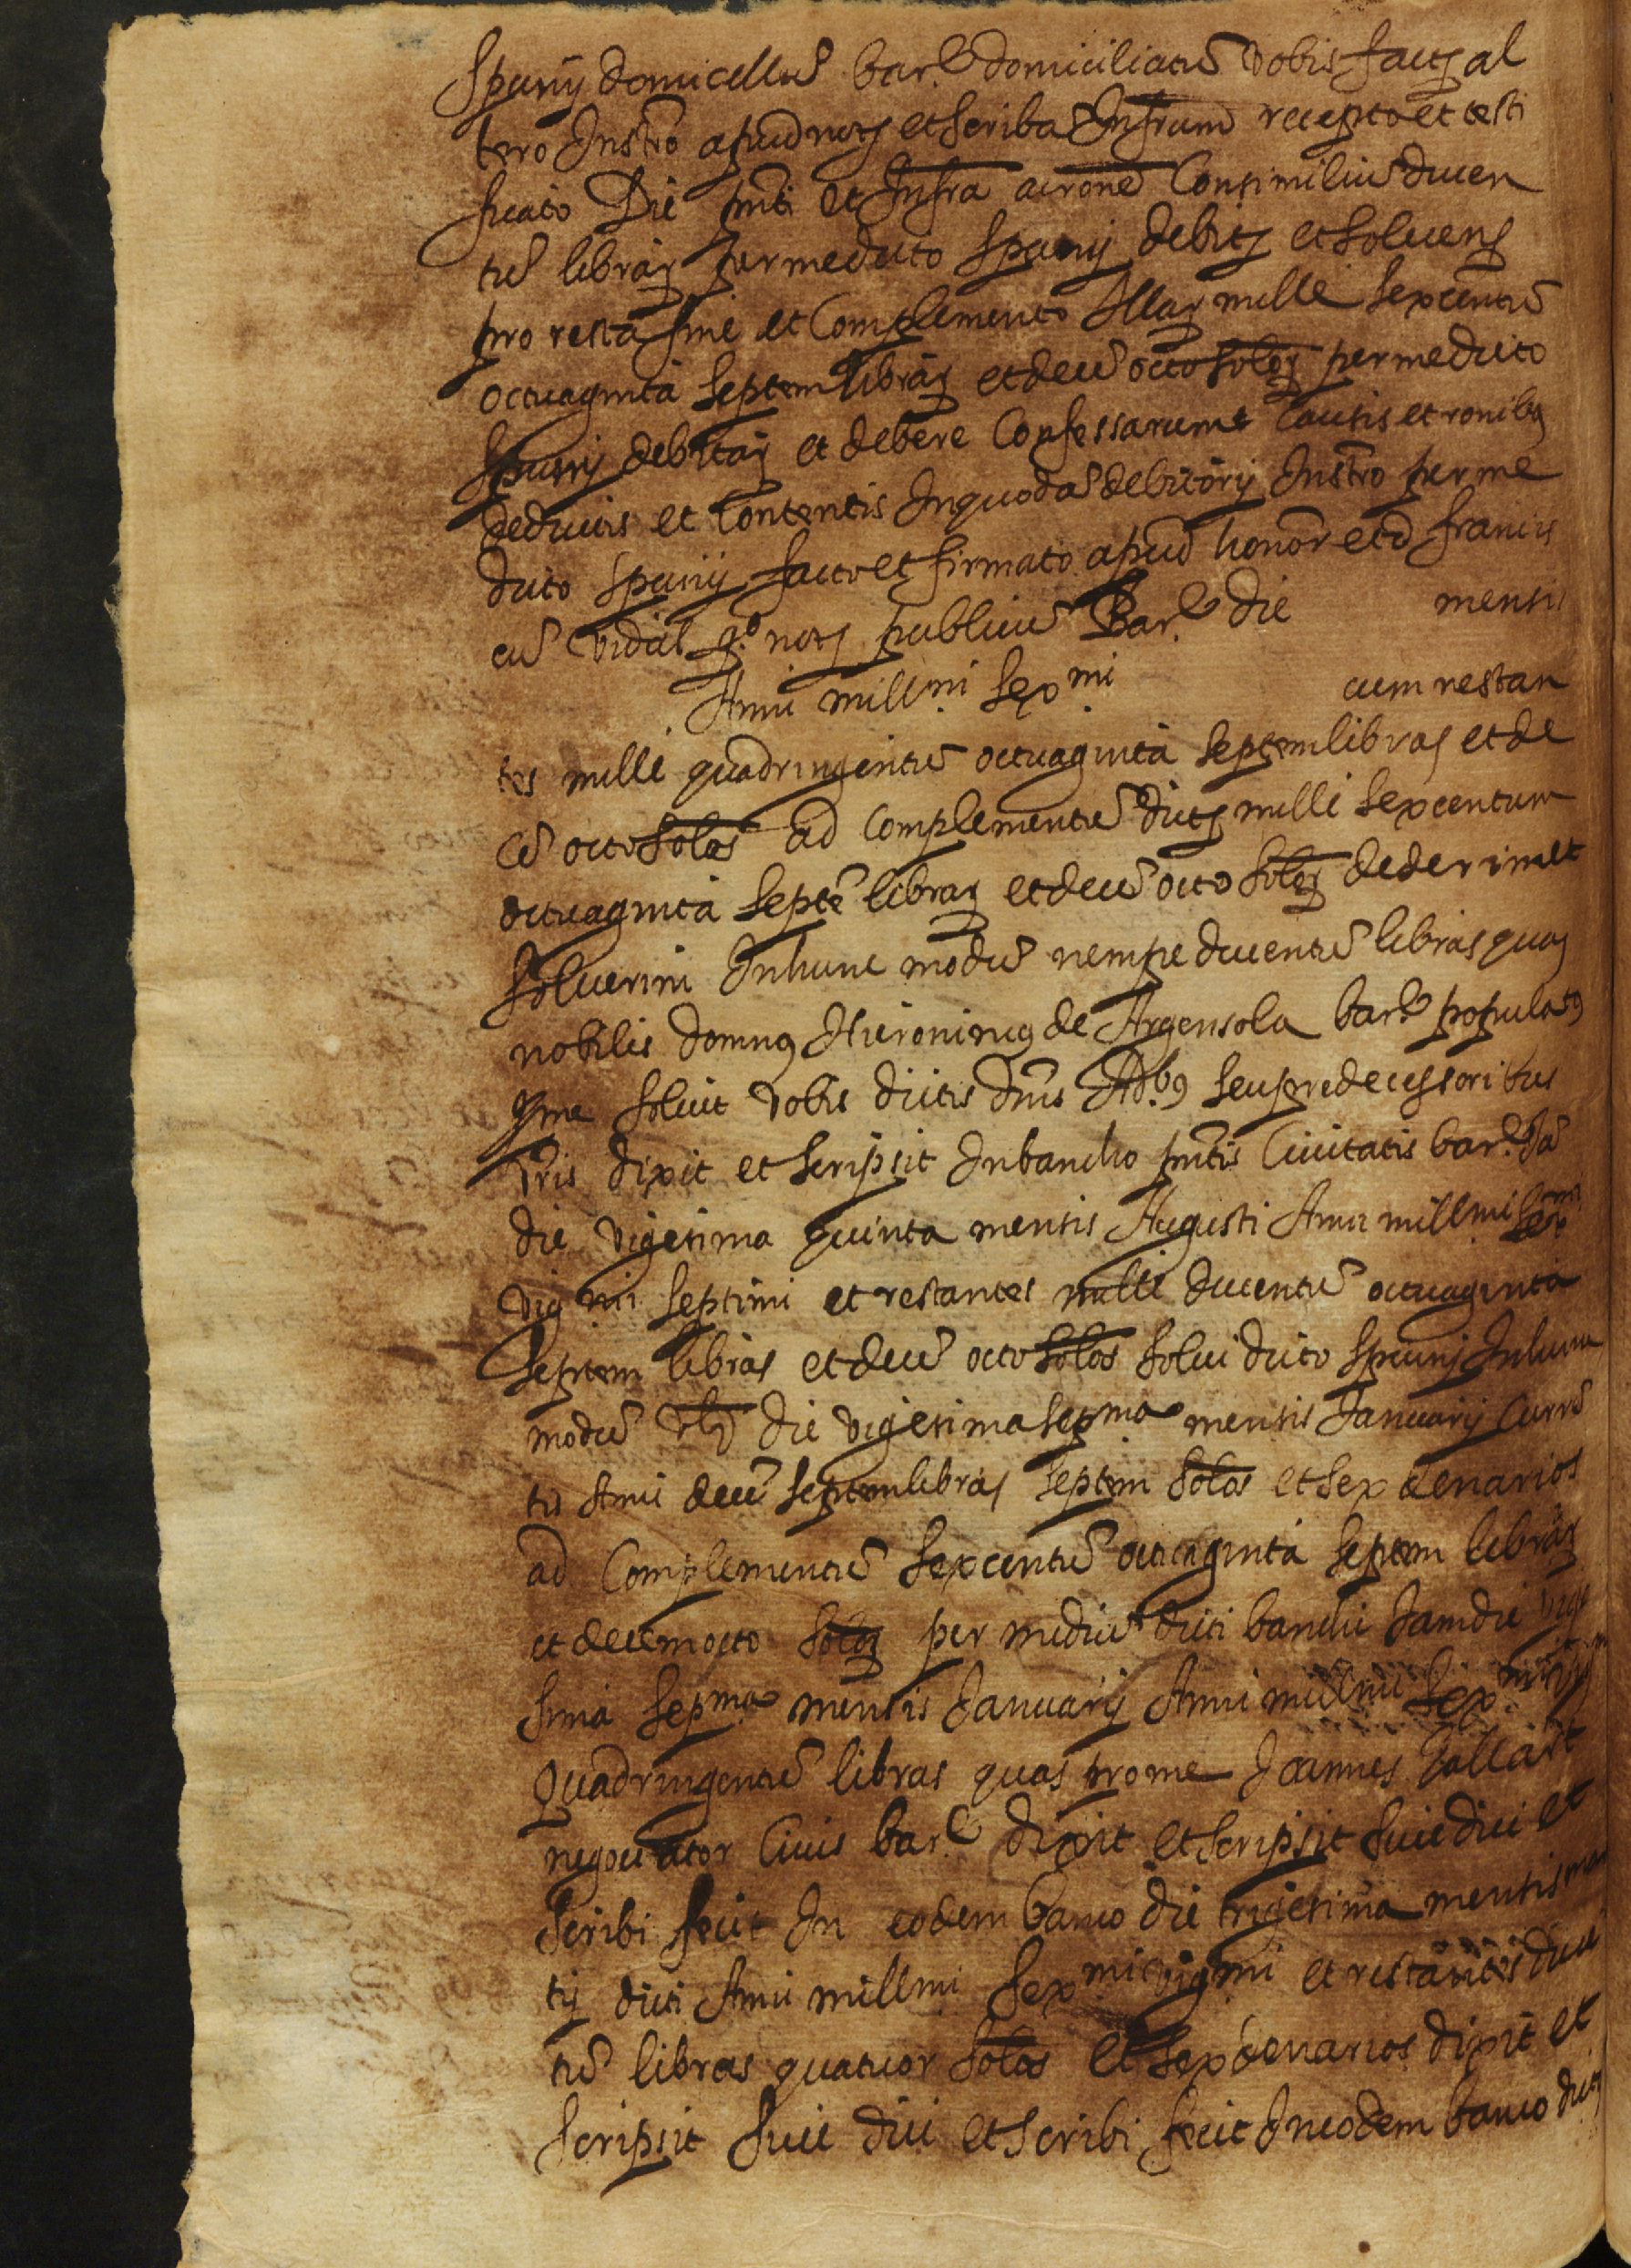 Spuny domicellũ bar.e domiciliatũ vobis factz al
tero Instrõ apud notz et scribã Infrum recepto et testi
ficato Die pnti et Infra aõrone Consimiliũ ducen
tũ librarz per me dicto Spuny debitz et solvenz
pro resta fine et Complemento Illarz mille Sexcentũ
octuaginta septem librarz et decẽ octo solorz per me dicto
Spuny debitarz et debere Confessarum Causis et ronibz
deductis et Contentis In quodã debitorij Instrõ per me
dicto Spunij facto et firmato apud honor et d francis
cũ vidal q.o notz publicũ Bar.e die mensis
Anni millmi Sexmi cum restan
tes mille quadringentũ octuaginta septem libras et de
cẽ octo solos ad Complementũ dictz mille sexcentum
octuaginta septẽ librarz et decẽ octo solorz dederim et
solverim In hunc modũ nempe ducentũ libras quas
nobilis domnus Hieronimus de Argensola bar.e populatus
pme solvit vobis dictis dnis Ad.bus seu predecessoribus
vris dixit et scripsit In bancho pntis Civitatis bar.e sã
die vigesima quinta mensis Augusti Anni millmi sexmi
vigmi septimi et restantes mille ducentũ octuaginta
septem libras et decẽ octo solos solvi dicto Spunij In hunc
modũ vlz die vigesima sepma mensis Januarij Currẽ
tis Anni decẽ septem libras septem solos et sex denarios
ad Complementũ Sexcentũ octuaginta septem librarz
et decem octo solorz per mediũ dicti banchi Jam die vige
sima sepma mensis Januarij Anni millmi sexmi
Quadringentũ libras quas pro me Joannes Jallart
negociator Civis bar.e dixit et scripsit sive dici et
scribi fecit In eodem banco die trigesima mensis mar
tij dicti Anni millmi Sexmi vigmi et restantes ducen
tũ libras quatuor solos et sex denarios dixit et
scripsit sive dici et scribi fecit In eodem banco dictz